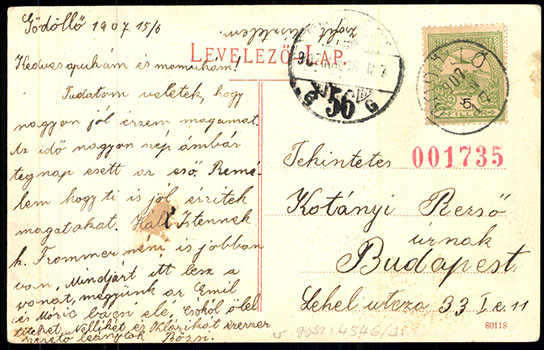 Gödöllő 1907. 15/6
LEVELEZŐ-LAP.
Kedves apukám és mamukám!
Tudatom veletek, hogy
nagyon jól érzem magamat.
Az idő nagyon szép ámbár
tegnap esett az eső. Reme-
lem hogy ti is jól érzitek
magatokat. Hál Istennek
k. Frommer néni is jobban
van. Mindjárt itt lesz a
vonat, megyünk az Emil
és Móric bácsi ele. Csókól ölel
titeket, Nellikét és Klárikát ezerszer
szerető leánytok Bözsi.
GÖDÖLLŐ
907
56
5
FILLÉR
001735
Tekintetes
Kotányi Rezső
úrnak
Budapest.
Lehel utcza 33 I e. 11
80118